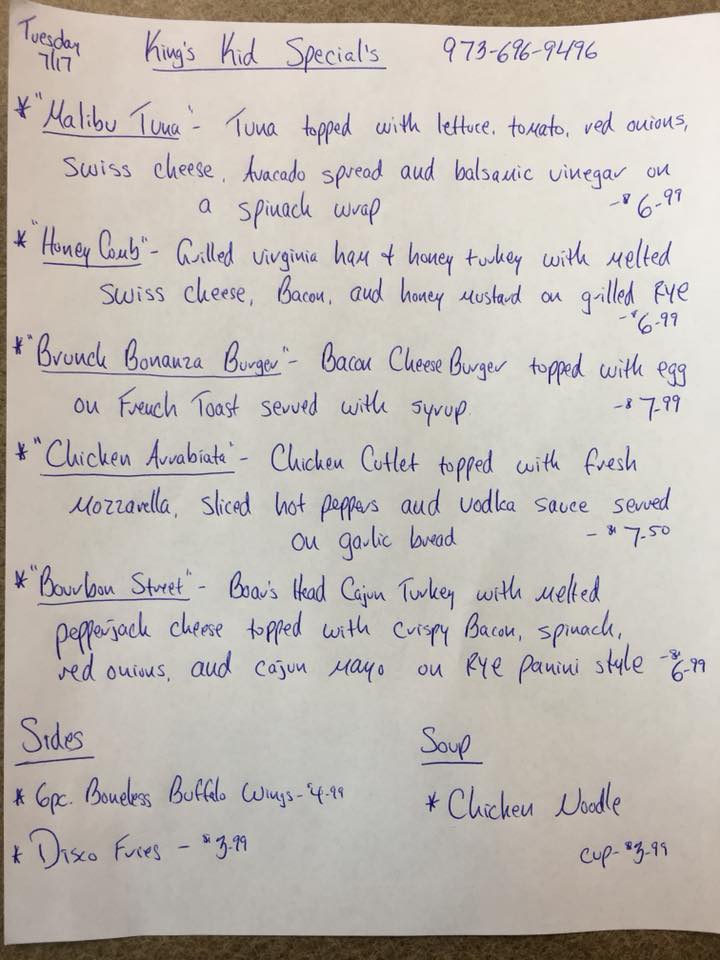 Tuesday
7/17
King's Kid Special's
973-696-9496
* "Malibu Tuna" - Tuna topped with lettuce, tomato, red onions,
Swiss cheese, Avacado spread and balsamic vinegar on
a spinach wrap -$6.99
* "Honey Comb" - Grilled virginia ham + honey turkey with melted
Swiss cheese, Bacon, and honey mustard on grilled Rye
-$6.99
* "Brunch Bonanza Burger" - Bacon Cheese Burger topped with egg
on French Toast served with syrup. -$7.99
* "Chicken Arrabiata" - Chicken Cutlet topped with fresh
Mozzarella, sliced hot peppers and vodka sauce served
on garlic bread - $7.50
* "Bourbon Street" - Boar's Head Cajun Turkey with melted
pepperjack cheese topped with crispy Bacon, spinach,
red onions, and cajun mayo on Rye panini style -$6.99
Sides
* 6pc. Boneless Buffalo Wings - $4.99
* Disco Fries - $3.99
Soup
* Chicken Noodle
cup - $3.99